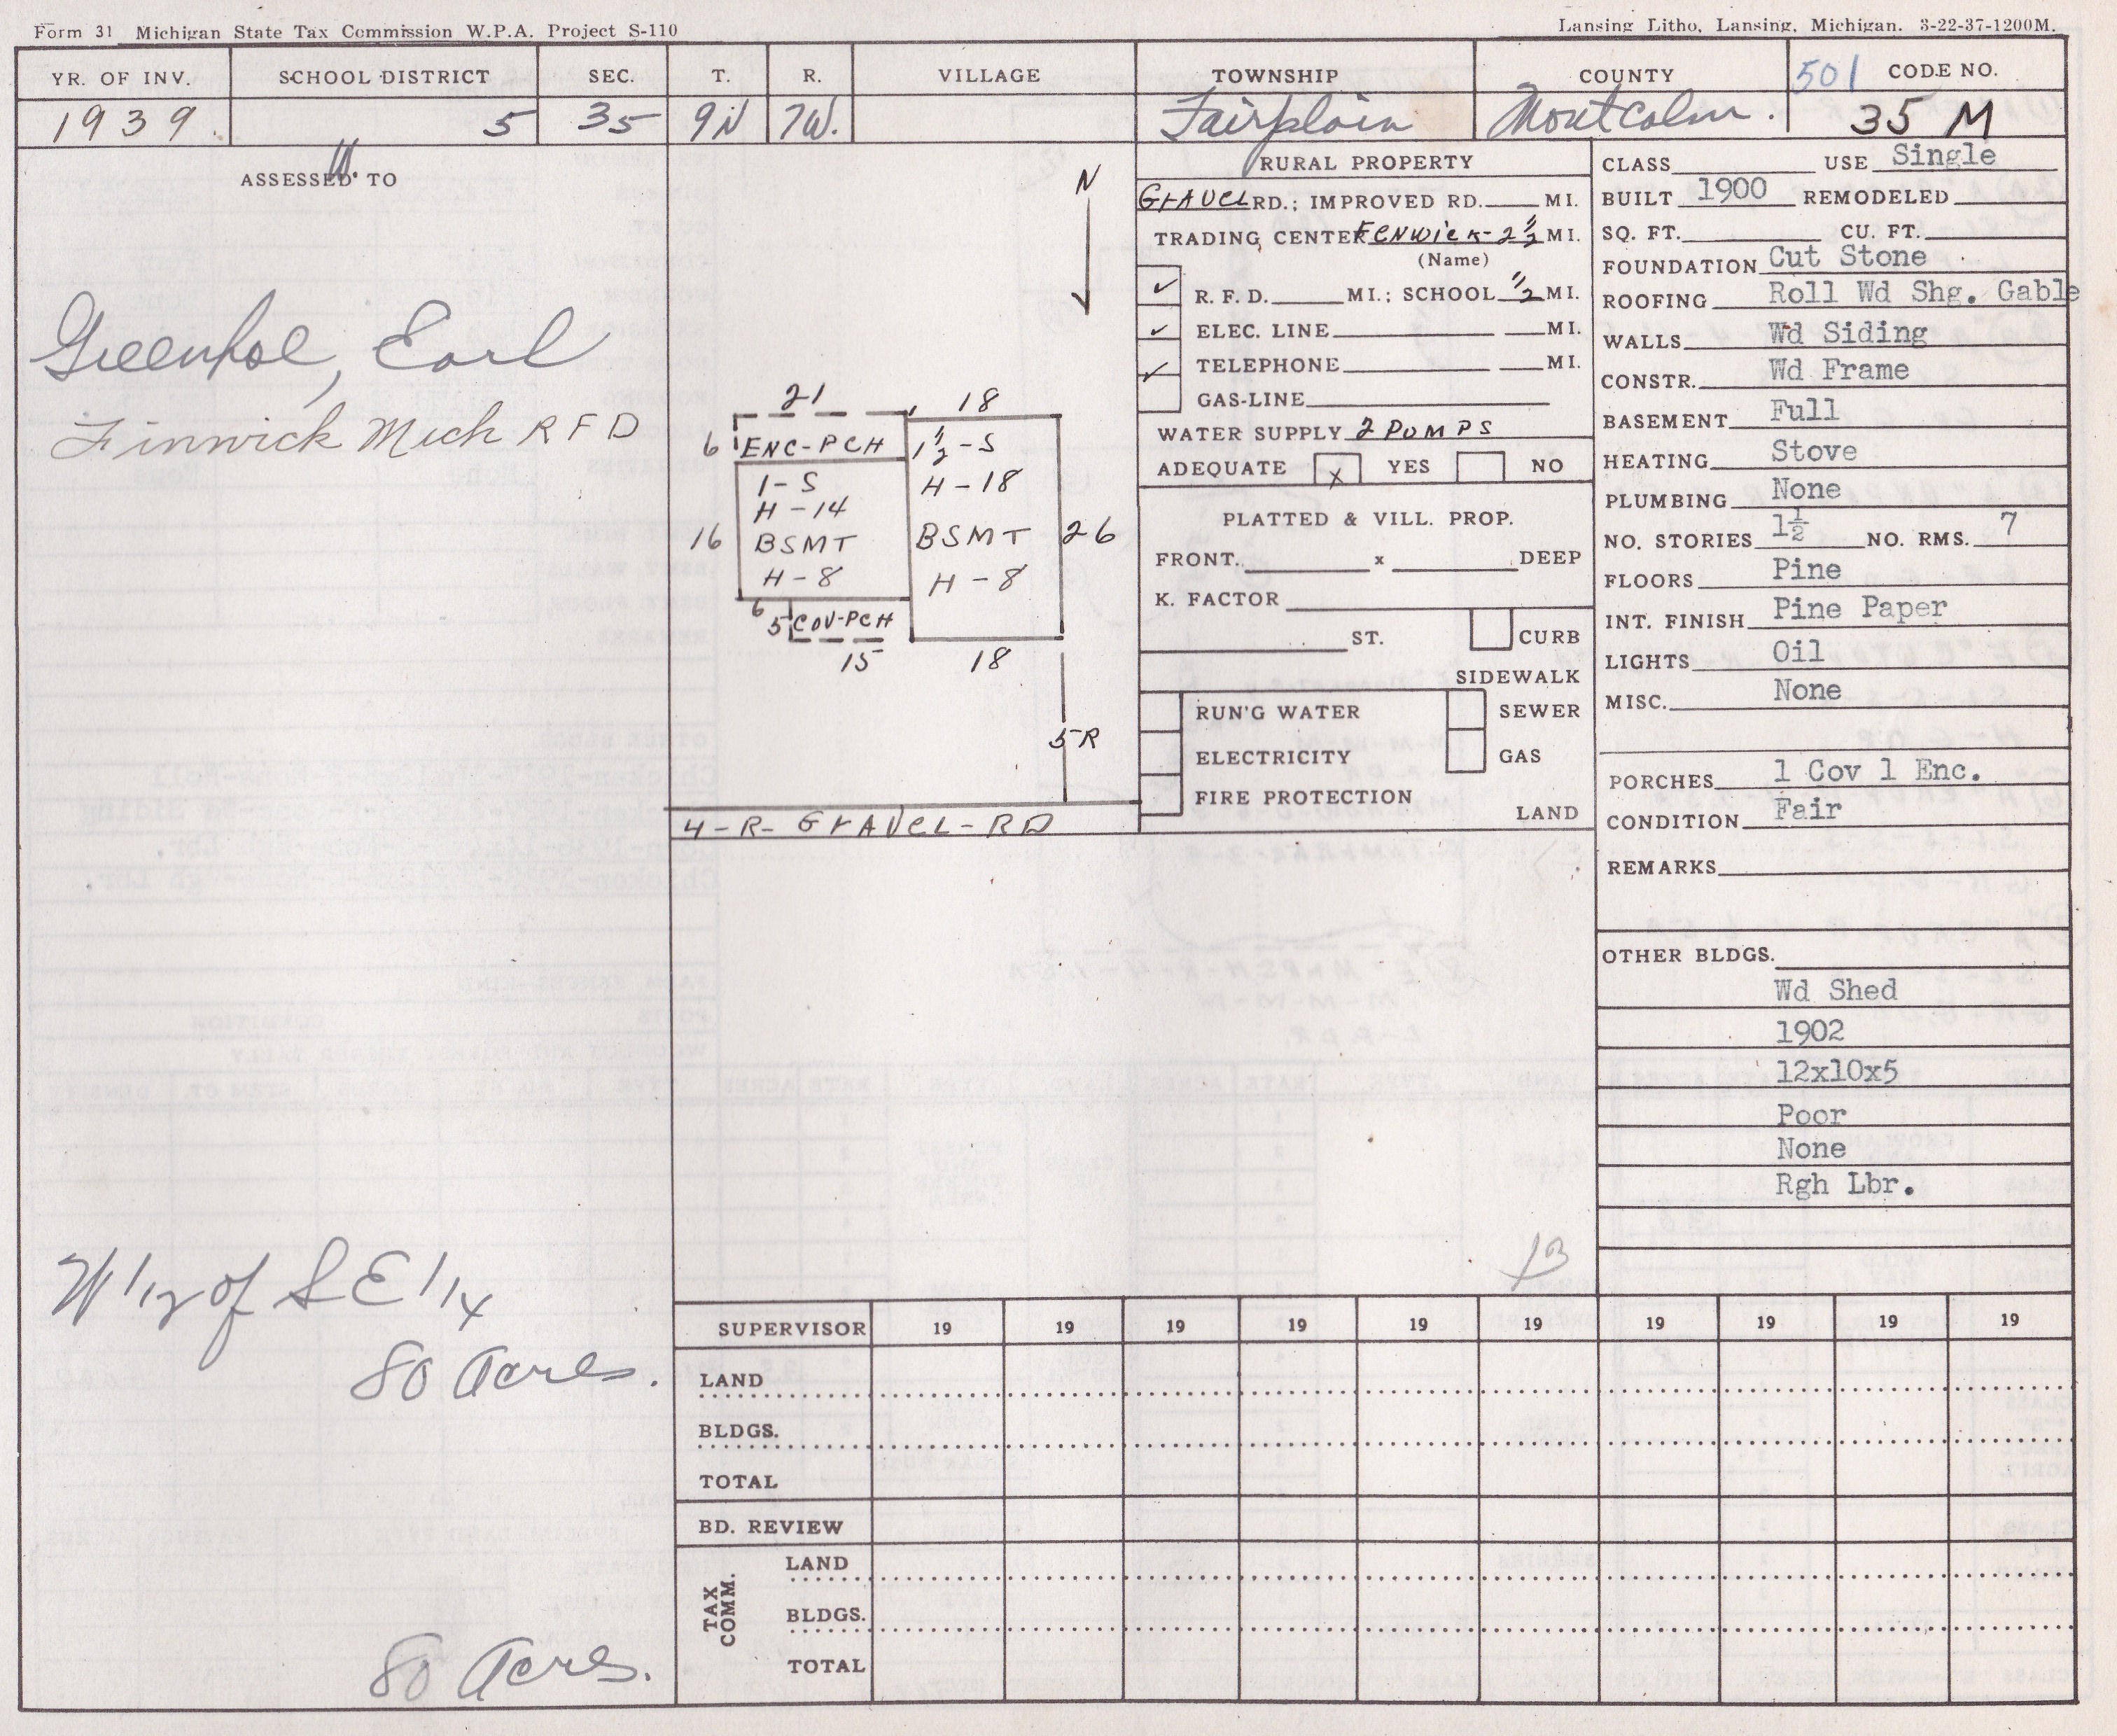 Form 31 Michigan State Tax Commission W.P.A. Project S-110
Lansing Litho, Lansing, Michigan. 3-22-37-1200M.
YR. OF INV. SCHOOL DISTRICT SEC. T. R. VILLAGE TOWNSHIP COUNTY 501 CODE NO.
1939. 5 35 9N 7W. Fairplain Montcalm. 35 M
ASSESSED TO
W.
Greenhoe, Earl
Finwick Mich R F D
W 1/2 of S E 1/4
80 Acres.
80 Acres.
N
21 18
6 ENC-PCH 1 1/2-S
1-S H-18
H-14
16 BSMT BSMT 26
H-8 H-8
6 5 COV-PCH
15 18
5-R
4-R- GRAVEL-RD
RURAL PROPERTY
GRAVEL RD.; IMPROVED RD. MI.
TRADING CENTER FENWICK-2 1/2 MI.
(Name)
✓ R. F. D. MI.; SCHOOL 1/2 MI.
✓ ELEC. LINE MI.
✓ TELEPHONE MI.
GAS-LINE
WATER SUPPLY 2 PUMPS
ADEQUATE X YES NO
PLATTED & VILL. PROP.
FRONT. x DEEP
K. FACTOR
ST. CURB
SIDEWALK
RUN'G WATER SEWER
ELECTRICITY GAS
FIRE PROTECTION
LAND
13
CLASS USE Single
BUILT 1900 REMODELED
SQ. FT. CU. FT.
FOUNDATION Cut Stone
ROOFING Roll Wd Shg. Gable
WALLS Wd Siding
CONSTR. Wd Frame
BASEMENT Full
HEATING Stove
PLUMBING None
NO. STORIES 1½ NO. RMS. 7
FLOORS Pine
INT. FINISH Pine Paper
LIGHTS Oil
MISC. None
PORCHES 1 Cov 1 Enc.
CONDITION Fair
REMARKS
OTHER BLDGS.
Wd Shed
1902
12x10x5
Poor
None
Rgh Lbr.
SUPERVISOR 19 19 19 19 19 19 19 19 19 19
LAND
BLDGS.
TOTAL
BD. REVIEW
TAX COMM.
LAND
BLDGS.
TOTAL